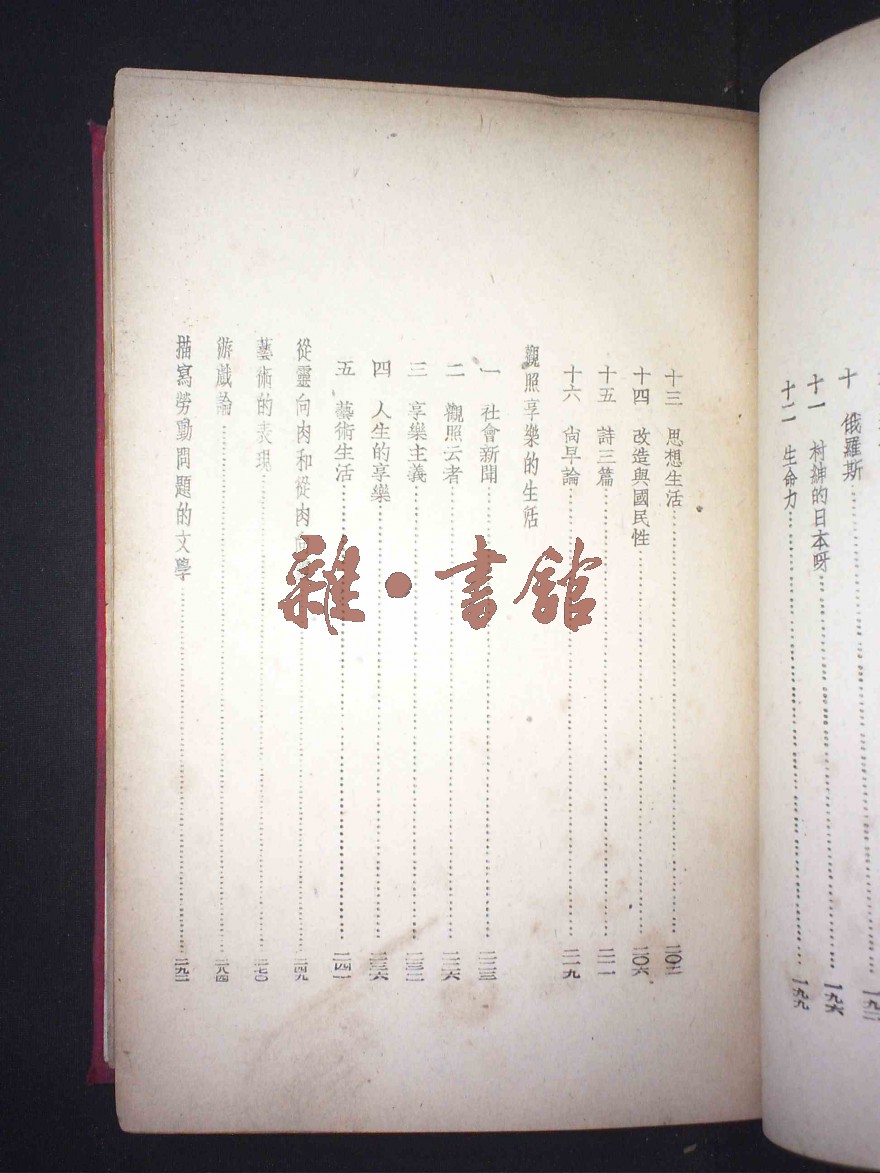 十 俄羅斯……一九二
十一 村紳的日本呀……一九六
十二 生命力……一九九
十三 思想生活……二〇二
十四 改造與國民性……二〇六
十五 詩三篇……二一一
十六 尙早論……二一九
觀照享樂的生活
一 社會新聞……二二三
二 觀照云者……二二六
三 享樂主義……二三二
四 人生的享樂……二三六
五 藝術生活……二四一
從靈向肉和從肉向……二四九
藝術的表現……二七〇
游戲論……二八四
描寫勞動問題的文學……二九一
雜·書館